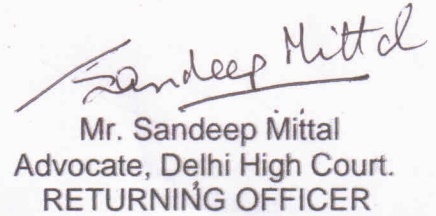 Sandeep Mittal
Mr. Sandeep Mittal
Advocate, Delhi High Court.
RETURNING OFFICER